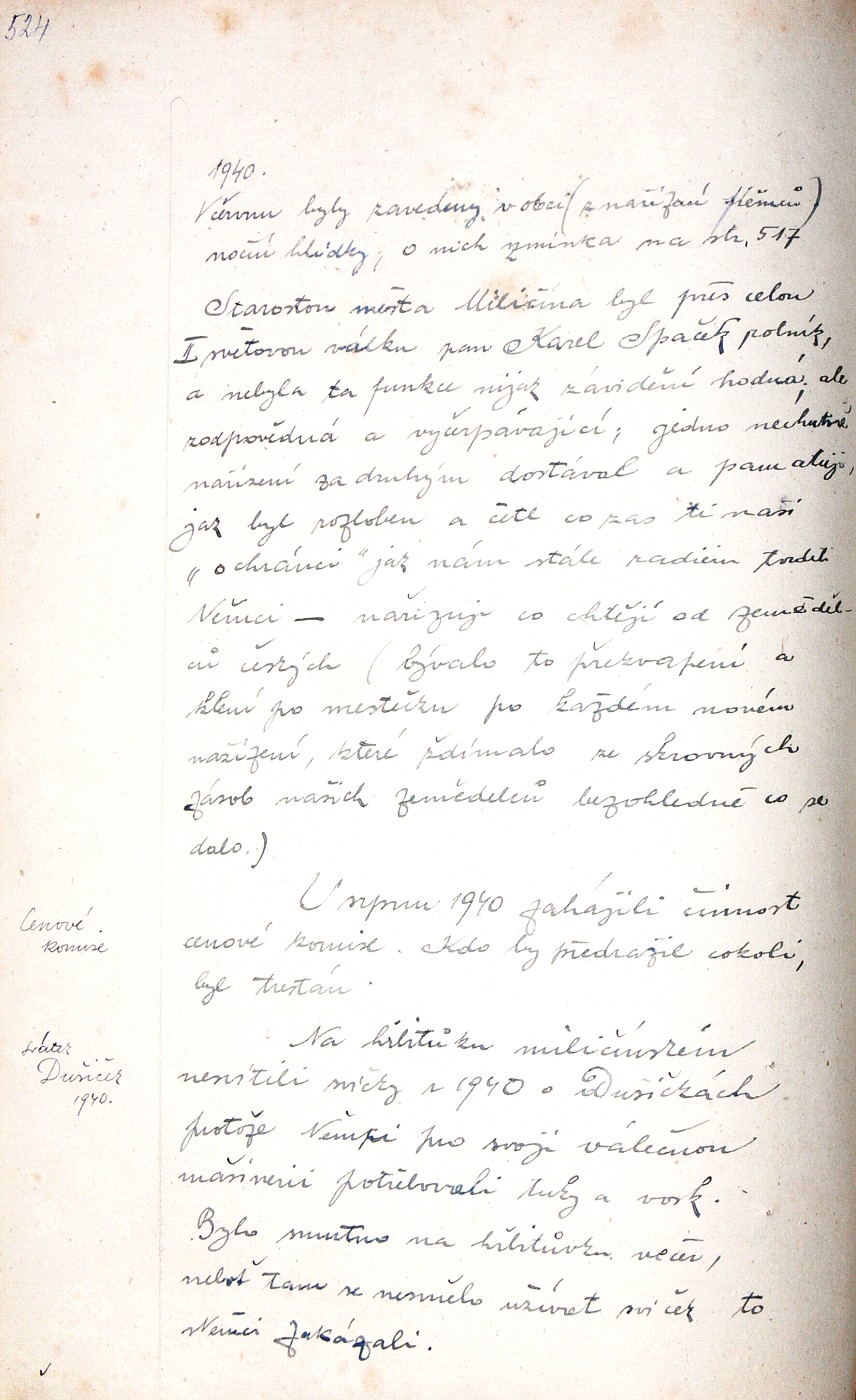 524
1940.
V červnu byly zavedeny v obci (z nařízení Němců)
noční hlídky, o nich zmínka na str. 517
Starostou města Miličína byl přes celou
II světovou válku pan Karel Spaček rolník,
a nebyla ta funkce nijak závidění hodná, ale
zodpovědná a vyčerpávající; jedno nechutné
nařízení za druhým dostával a pamatuji,
jak byl rozloben a četl co zas ti naši
„ochránci" jak nám stále radiem tvrdili
Němci — nařizuji co chtějí od zeměděl-
ců českých (bývalo to překvapení a
klení po městečku po každém novém
nařízení, které ždímalo ze skrovných
zásob našich zemědělců bezohledně co se
dalo.)
Cenové
komise
V srpnu 1940 zahájili činnost
cenové komise. Kdo by předražil cokoli,
byl trestán.
svátek
Dušiček
1940.
Na hřbitůvku miličínském
nesvítili svíčky r 1940 o Dušičkách
protože Němci pro svoji válečnou
mašinerii potřebovali tuky a vosk.
Bylo smutno na hřbitůvku večer,
neboť tam se nesmělo užívat svíček to
Němci zakázali.